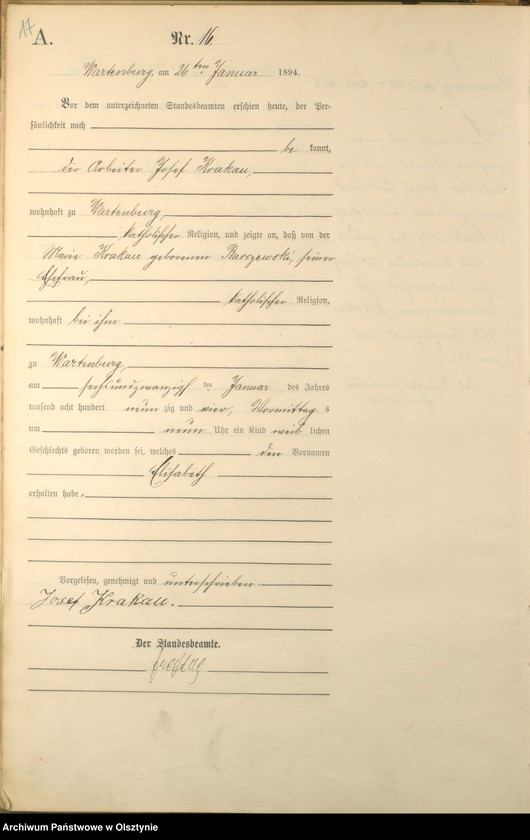 17
A.
Nr. 16.
Wartenburg, am 26ten Januar 1894.
Vor dem unterzeichneten Standesbeamten erschien heute, der Per-
sönlichkeit nach
be kannt,
der Arbeiter Josef Krakau,
wohnhaft zu Wartenburg,
katholischer Religion, und zeigte an, daß von der
Marie Krakau geborenen Barczewski, seiner
Ehefrau,
katholischer Religion,
wohnhaft bei ihm
zu Wartenburg,
am sechsundzwanzigsten Januar des Jahres
tausend acht hundert neun zig und vier, Vormittag s
um neun Uhr ein Kind weib lichen
Geschlechts geboren worden sei, welches den Vornamen
Elisabeth
erhalten habe.
Vorgelesen, genehmigt und unterschrieben
Josef Krakau.
Der Standesbeamte.
Freytag
Archiwum Państwowe w Olsztynie